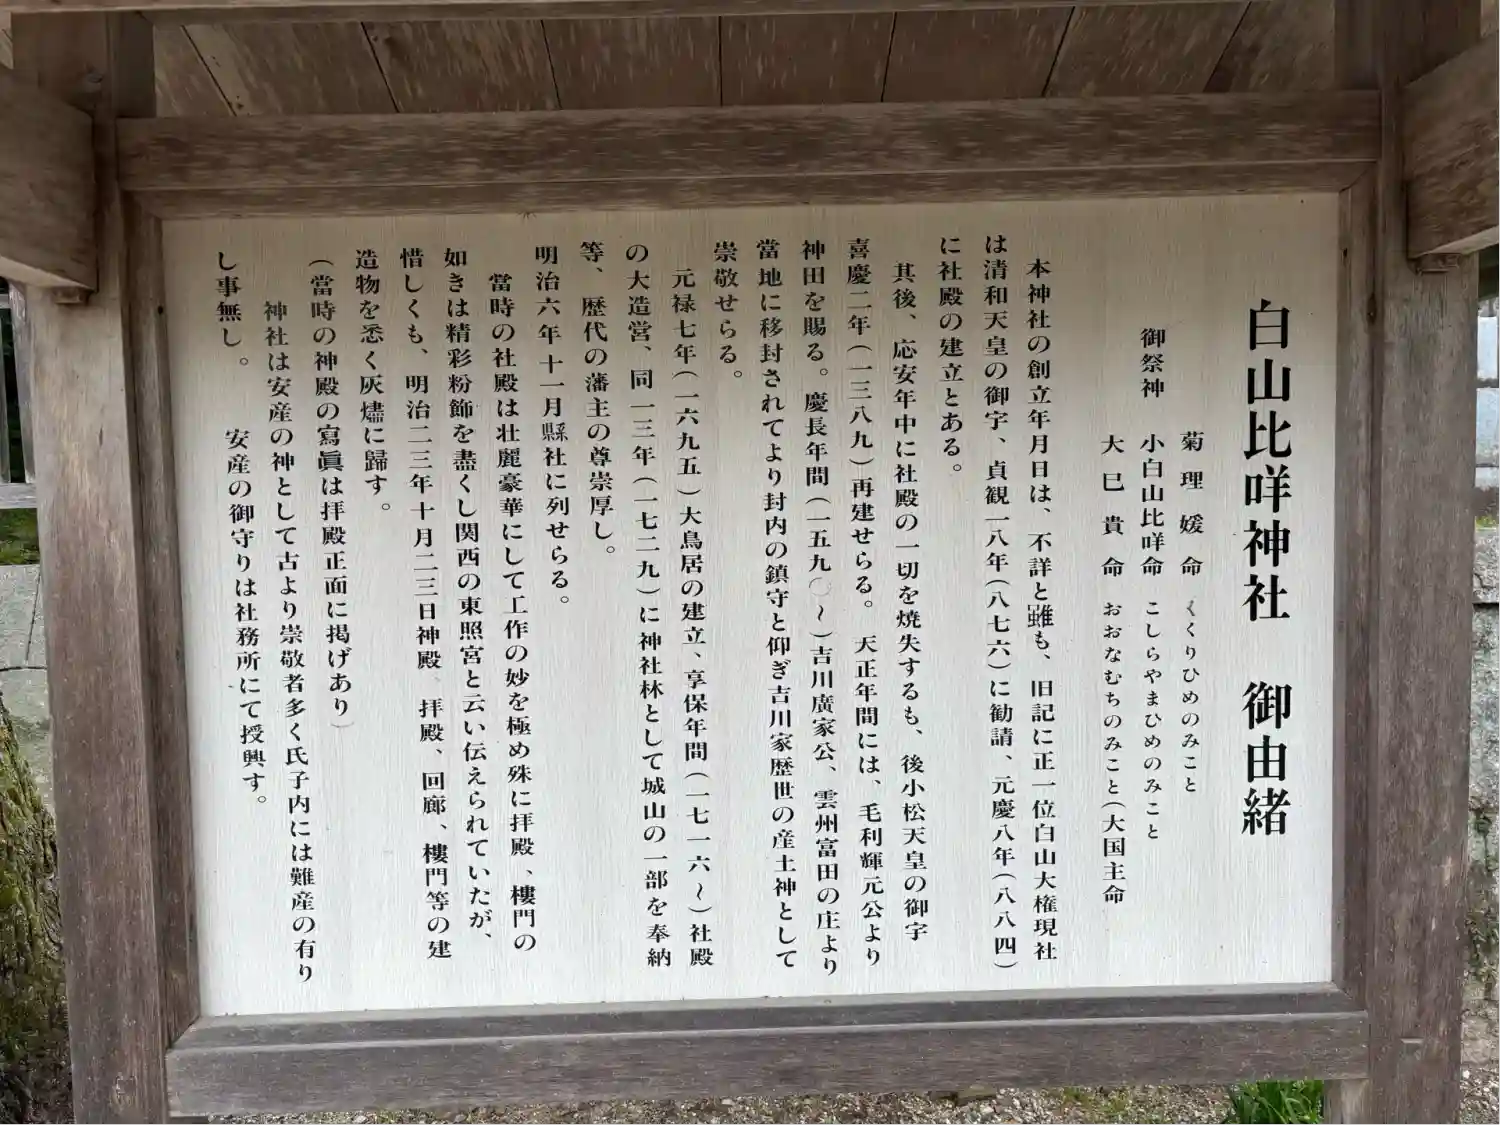 白山比咩神社　御由緒
菊理媛命　くくりひめのみこと
御祭神　小白山比咩命　こしらやまひめのみこと
大巳貴命　おおなむちのみこと(大国主命
本神社の創立年月日は、不詳と雖も、旧記に正一位白山大権現社
は清和天皇の御宇、貞観一八年(八七六)に勧請、元慶八年(八八四)
に社殿の建立とある。
其後、応安年中に社殿の一切を焼失するも、後小松天皇の御宇
喜慶二年(一三八九)再建せらる。天正年間には、毛利輝元公より
神田を賜る。慶長年間(一五九〇～)吉川廣家公、雲州富田の庄より
當地に移封されてより封内の鎮守と仰ぎ吉川家歴世の産土神として
崇敬せらる。
元禄七年(一六九五)大鳥居の建立、享保年間(一七一六～)社殿
の大造営、同一三年(一七二九)に神社林として城山の一部を奉納
等、歴代の藩主の尊崇厚し。
明治六年十一月縣社に列せらる。
當時の社殿は壮麗豪華にして工作の妙を極め殊に拝殿、樓門の
如きは精彩粉飾を盡くし関西の東照宮と云い伝えられていたが、
惜しくも、明治二三年十月二三日神殿、拝殿、回廊、樓門等の建
造物を悉く灰燼に歸す。
(當時の神殿の寫眞は拝殿正面に掲げあり)
神社は安産の神として古より崇敬者多く氏子内には難産の有り
し事無し。　安産の御守りは社務所にて授興す。